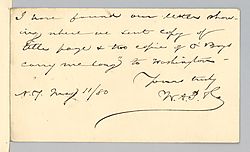 I have found our letter show-
ing where we sent copy of
title page & two copies of O Boys
carry me long to Washington
Yours truly
N.Y. May 11/80